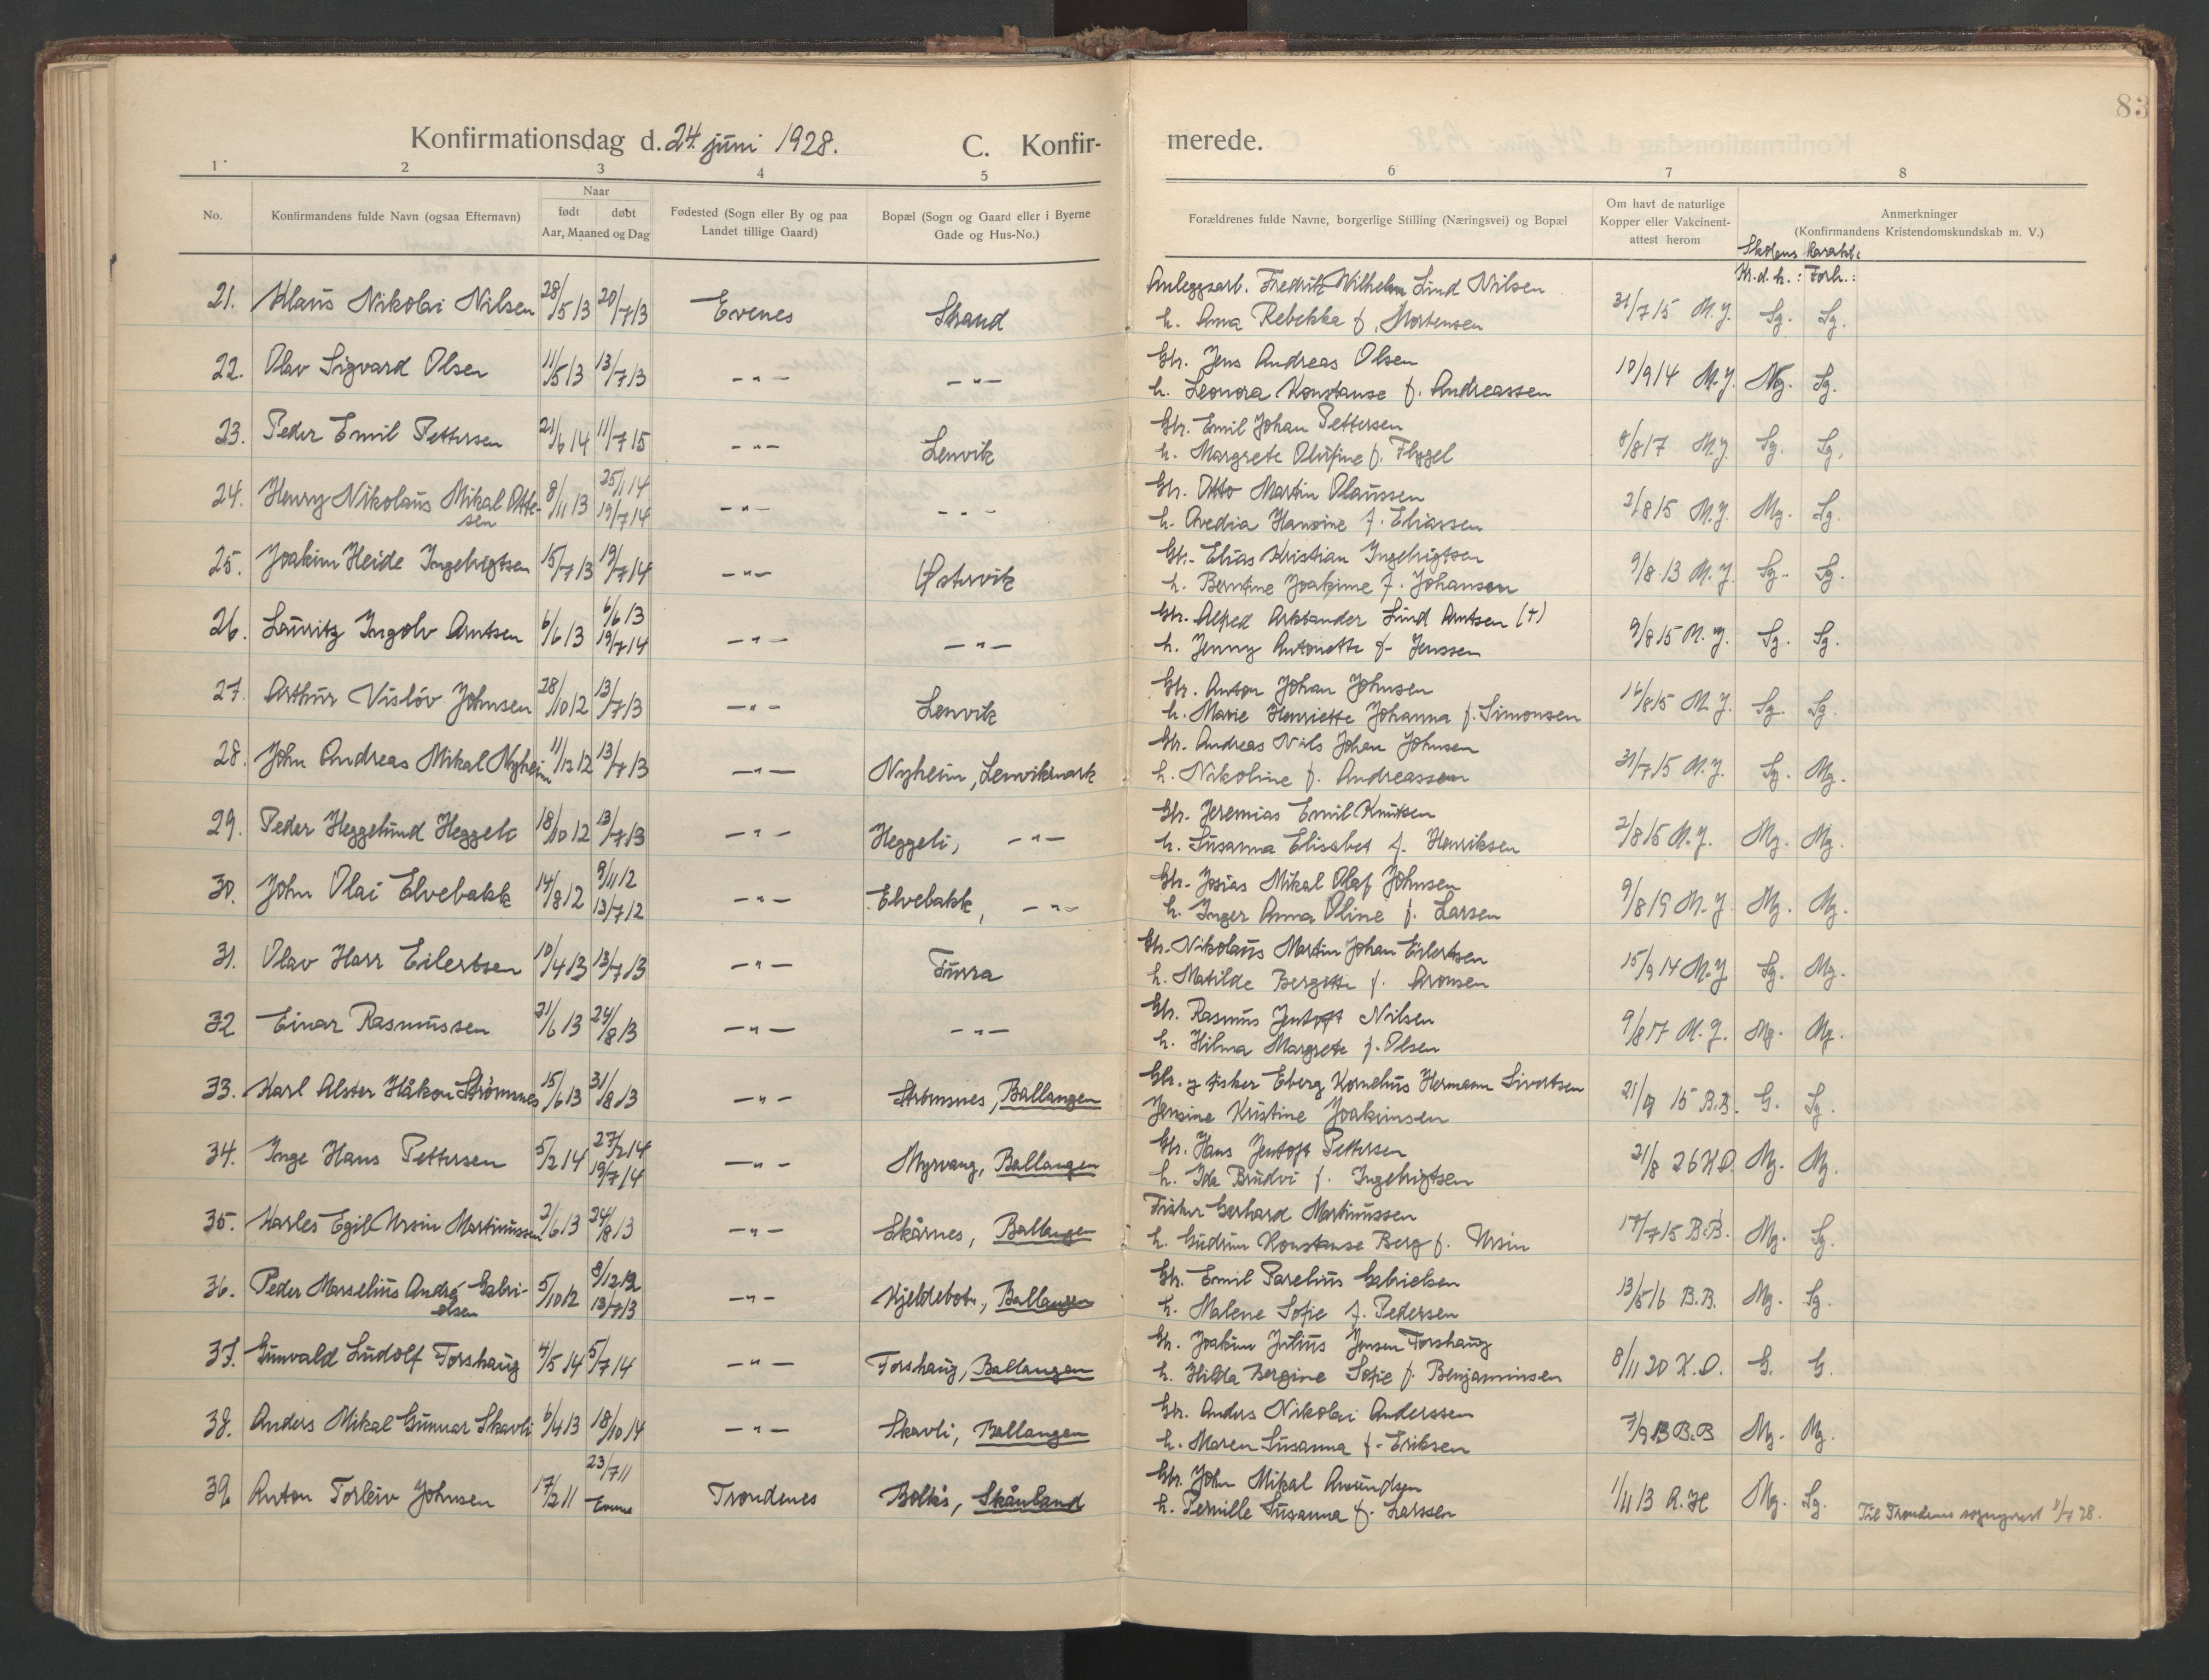 83
Konfirmationsdag d. 24. juni 1928. C. Konfirmerede.
1 2 3 4 5 6 7 8
No. Konfirmandens fulde Navn (ogsaa Efternavn) Naar født døbt Aar, Maaned og Dag Fødested (Sogn eller By og paa Landet tillige Gaard) Bopæl (Sogn og Gaard eller i Byerne Gade og Hus-No.) Forældrenes fulde Navne, borgerlige Stilling (Næringsvei) og Bopæl Om havt de naturlige Kopper eller Vakcinentattest herom Anmerkninger (Konfirmandens Kristendomskundskab m. V.)
Skolens Karakt.:
Kr.d.k.: Forh.:
21. Klaus Nikolai Nilsen 28/5 13 20/7 13 Evenes Strand Anleggsarb. Fredrik Wilhelm Lind Nilsen 31/7 15 M.J. Sg. Sg.
h. Anna Rebekka f. Mortensen
22. Olav Sigvard Olsen 11/5 13 13/7 13 -"- -"- Gbr. Jens Andreas Olsen 10/9 14 M.J. Mg. Sg.
h. Leonora Konstanse f. Andreassen
23. Peder Emil Pettersen 21/6 14 11/7 15 -"- Lenvik Gbr. Emil Johan Pettersen 8/8 17 M.J. Sg. Sg.
h. Margrete Olufine f. Flygel
24. Henry Nikolaus Mikal Otte-
sen 8/11 13 25/1 14 19/7 14 -"- -"- Gbr. Otto Martin Olaussen 2/8 15 M.J. Mg. Sg.
h. Avedia Hansine f. Eliassen
25. Joakim Heide Ingebrigtsen 15/7 13 19/7 14 -"- Østervik Gbr. Elias Kristian Ingebrigtsen 9/8 13 M.J. Sg. Sg.
h. Berntine Joakime f. Johansen
26. Lauritz Ingolv Arntsen 6/6 13 6/6 13 19/7 14 -"- -"- Gbr. Alfred Arktander Lind Arntsen (+) 9/8 15 M.J. Sg. Sg.
h. Jenny Antonette f. Jenssen
27. Arthur Visløv Johnsen 28/10 12 13/7 13 -"- Lenvik Gbr. Anton Johan Johnsen 16/8 15 M.J. Sg. Sg.
h. Marie Henriette Johanna f. Simonsen
28. John Andreas Mikal Nyheim 11/12 12 13/7 13 -"- Nyheim, Lenvikmark Gbr. Andreas Nils Johan Johnsen 31/7 15 M.J. Sg. Mg.
h. Nikoline f. Andreassen
29. Peder Heggelund Heggeli 18/10 12 13/7 13 -"- Heggeli, -"- Gbr. Jeremias Emil Knutsen 2/8 15 M.J. Mg. Mg.
h. Susanna Elisabet f. Henriksen
30. John Olai Elvebakk 14/8 12 9/11 12 13/7 12 -"- Elvebakk, -"- Gbr. Josias Mikal Olaf Johnsen 9/8 19 M.J. Mg. Mg.
h. Inger Anna Oline f. Larsen
31. Olav Harr Eilertsen 10/4 13 13/7 13 -"- Turra Gbr. Nikolaus Martin Johan Eilertsen 15/9 14 M.J Sg. Mg.
h. Matilde Bergitte f. Aronsen
32 Einar Rasmussen 21/6 13 24/8 13 -"- -"- Gbr. Rasmus Jentoft Nilsen 9/8 17 M.J. Mg. Mg.
h. Hilma Margrete f. Olsen
33. Karl Alster Håkon Strømsnes 15/6 13 31/8 13 -"- Strømsnes, Ballangen Gbr. og fisker Eberg Kornelius Hermann Sivertsen 21/9 15 B.B. G. Sg.
Jensine Kristine Joakimsen
34. Inge Hans Pettersen 5/2 14 27/2 14 19/7 14 -"- Myrvang, Ballangen Gbr. Hans Jentoft Pettersen 21/8 26 K.O. Mg. Mg.
h. Ida Brudvi f. Ingebrigtsen
35. Karles Egil Ursin Martinussen 2/6 13 24/8 13 -"- Skårnes, Ballangen Fisker Gerhard Martinussen 17/7 15 B.B. Mg. Sg.
h. Gudrun Konstanse Berg f. Ursin
36. Peder Marselius André Gabri-
elsen 5/10 12 8/12 12 13/7 13 -"- Kjeldebotn, Ballangen Gbr. Emil Parelius Gabrielsen 13/5 16 B.B. Mg. Sg.
h. Malene Sofie f. Pedersen
37. Gunvald Ludolf Forshaug 4/5 14 5/7 14 -"- Forshaug, Ballangen Gbr. Joakim Julius Jensen Forshaug 8/11 20 K.O. G. G.
h. Hilda Bergine Sofie f. Benjaminsen
38. Anders Mikal Gunnar Skavli 6/4 13 18/10 14 -"- Skavli, Ballangen Gbr. Anders Nikolai Anderssen 7/9 13 B.B Mg. Mg.
h. Maren Susanna f. Eriksen
39. Anton Torleiv Johnsen 17/2 11 23/7 11 Evenes Trondenes Boltås, Skånland Gbr. John Mikal Amundsen 1/11 13 A.H Mg. Sg. Til Trondenes sogneprest 11/7 28.
h. Pernille Susanna f. Larssen